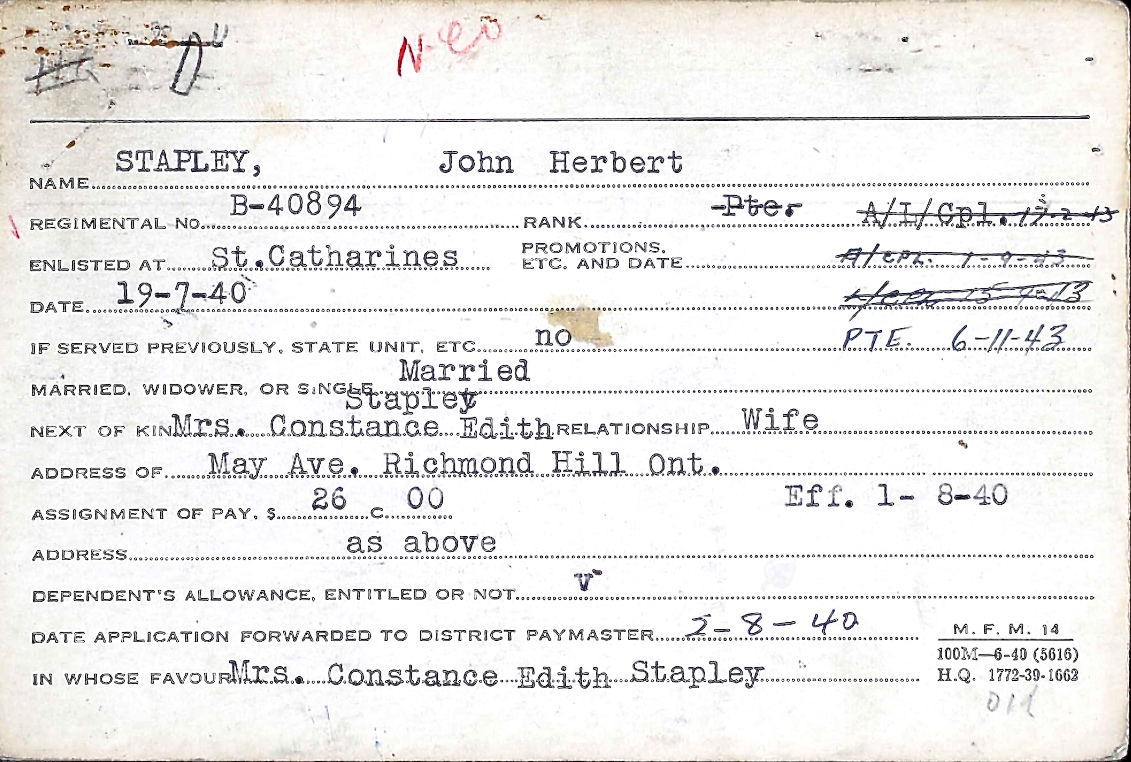 STAPLEY, John Herbert
NAME
REGIMENTAL NO. B-40894 RANK Pte. A/L/Cpl. 17-2-43
ENLISTED AT St.Catharines PROMOTIONS, ETC. AND DATE A/CPL. 1-9-43
DATE 19-7-40
IF SERVED PREVIOUSLY, STATE UNIT, ETC. no PTE. 6-11-43
MARRIED, WIDOWER, OR SINGLE Married
Stapley
NEXT OF KIN Mrs. Constance Edith RELATIONSHIP Wife
ADDRESS OF May Ave. Richmond Hill Ont.
ASSIGNMENT OF PAY, $ 26 C. 00 Eff. 1- 8-40
ADDRESS as above
DEPENDENT'S ALLOWANCE, ENTITLED OR NOT v
DATE APPLICATION FORWARDED TO DISTRICT PAYMASTER 2-8-40
IN WHOSE FAVOUR Mrs. Constance Edith Stapley
M. F. M. 14
100M—6-40 (5616)
H.Q. 1772-39-1662